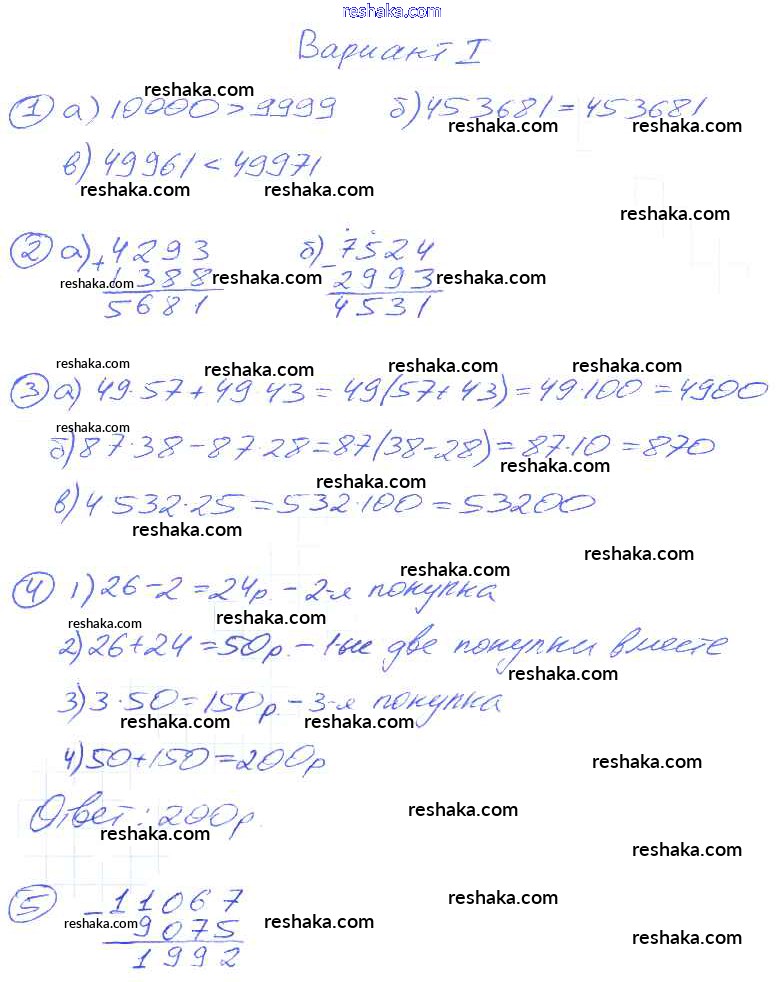 reshaka.com
Вариант I
reshaka.com
① а) 10000 > 9999 б) 453681 = 453681
reshaka.com reshaka.com
в) 49961 < 49971
reshaka.com reshaka.com
reshaka.com
② а) + 4293 б) - 7524
reshaka.com 1388 reshaka.com 2993 reshaka.com
5681 4531
reshaka.com reshaka.com reshaka.com reshaka.com
③ а) 49·57 + 49·43 = 49(57+43) = 49·100 = 4900
reshaka.com
б) 87·38 - 87·28 = 87(38-28) = 87·10 = 870
reshaka.com
reshaka.com
в) 4 532·25 = 532·100 = 53200
reshaka.com
reshaka.com
reshaka.com
④ 1) 26 - 2 = 24р. - 2-я покупка
reshaka.com reshaka.com
2) 26 + 24 = 50р. - 1-ые две покупки вместе
reshaka.com
3) 3·50 = 150р. - 3-я покупка
reshaka.com reshaka.com
4) 50 + 150 = 200р
reshaka.com
reshaka.com
Ответ: 200р.
reshaka.com
reshaka.com
⑤ - 11067
reshaka.com
reshaka.com 9075 reshaka.com
reshaka.com
1992